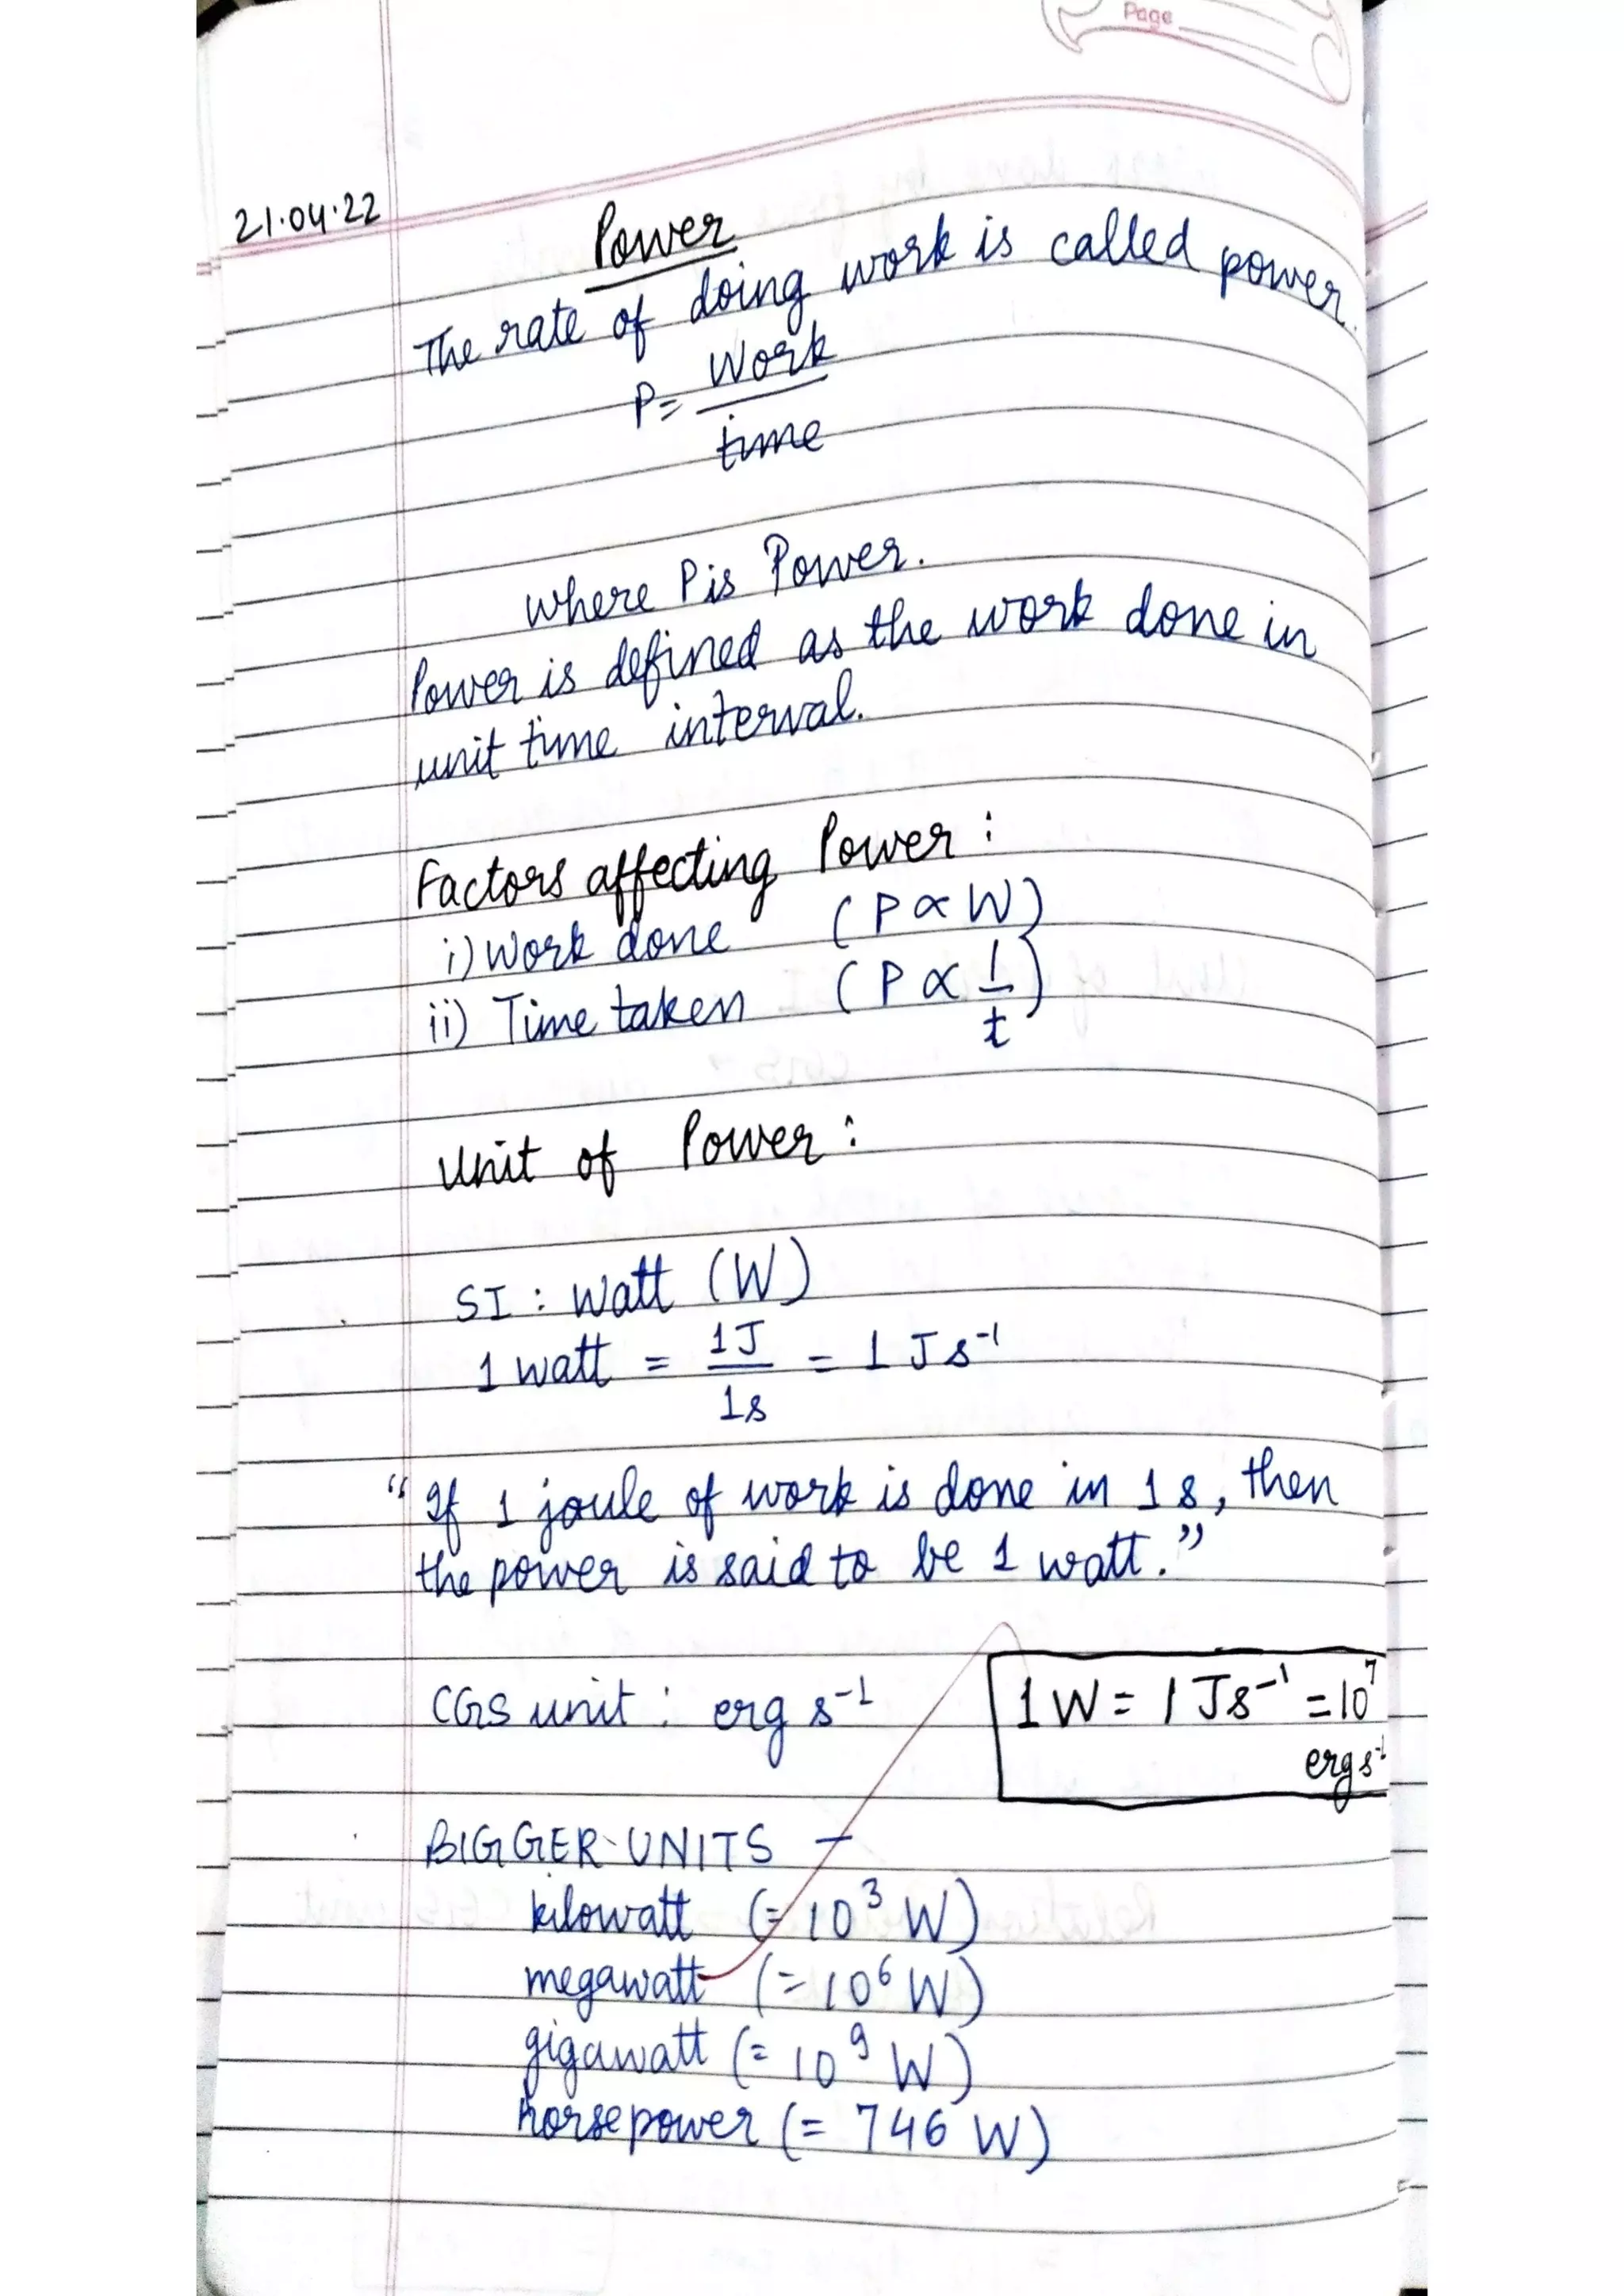 Page
21.04.22
Power
The rate of doing work is called power.
P = Work
time
where P is Power.
Power is defined as the work done in
unit time interval.
Factors affecting Power :
i) Work done (P ∝ W)
ii) Time taken (P ∝ 1/t)
Unit of Power :
SI : Watt (W)
1 watt = 1J/1s = 1 J s⁻¹
“If 1 joule of work is done in 1 s, then
the power is said to be 1 watt.”
CGS unit : erg s⁻¹
1 W = 1 Js⁻¹ = 10⁷
erg s⁻¹
BIGGER UNITS –
kilowatt (= 10³ W)
megawatt (= 10⁶ W)
gigawatt (= 10⁹ W)
horsepower (= 746 W)